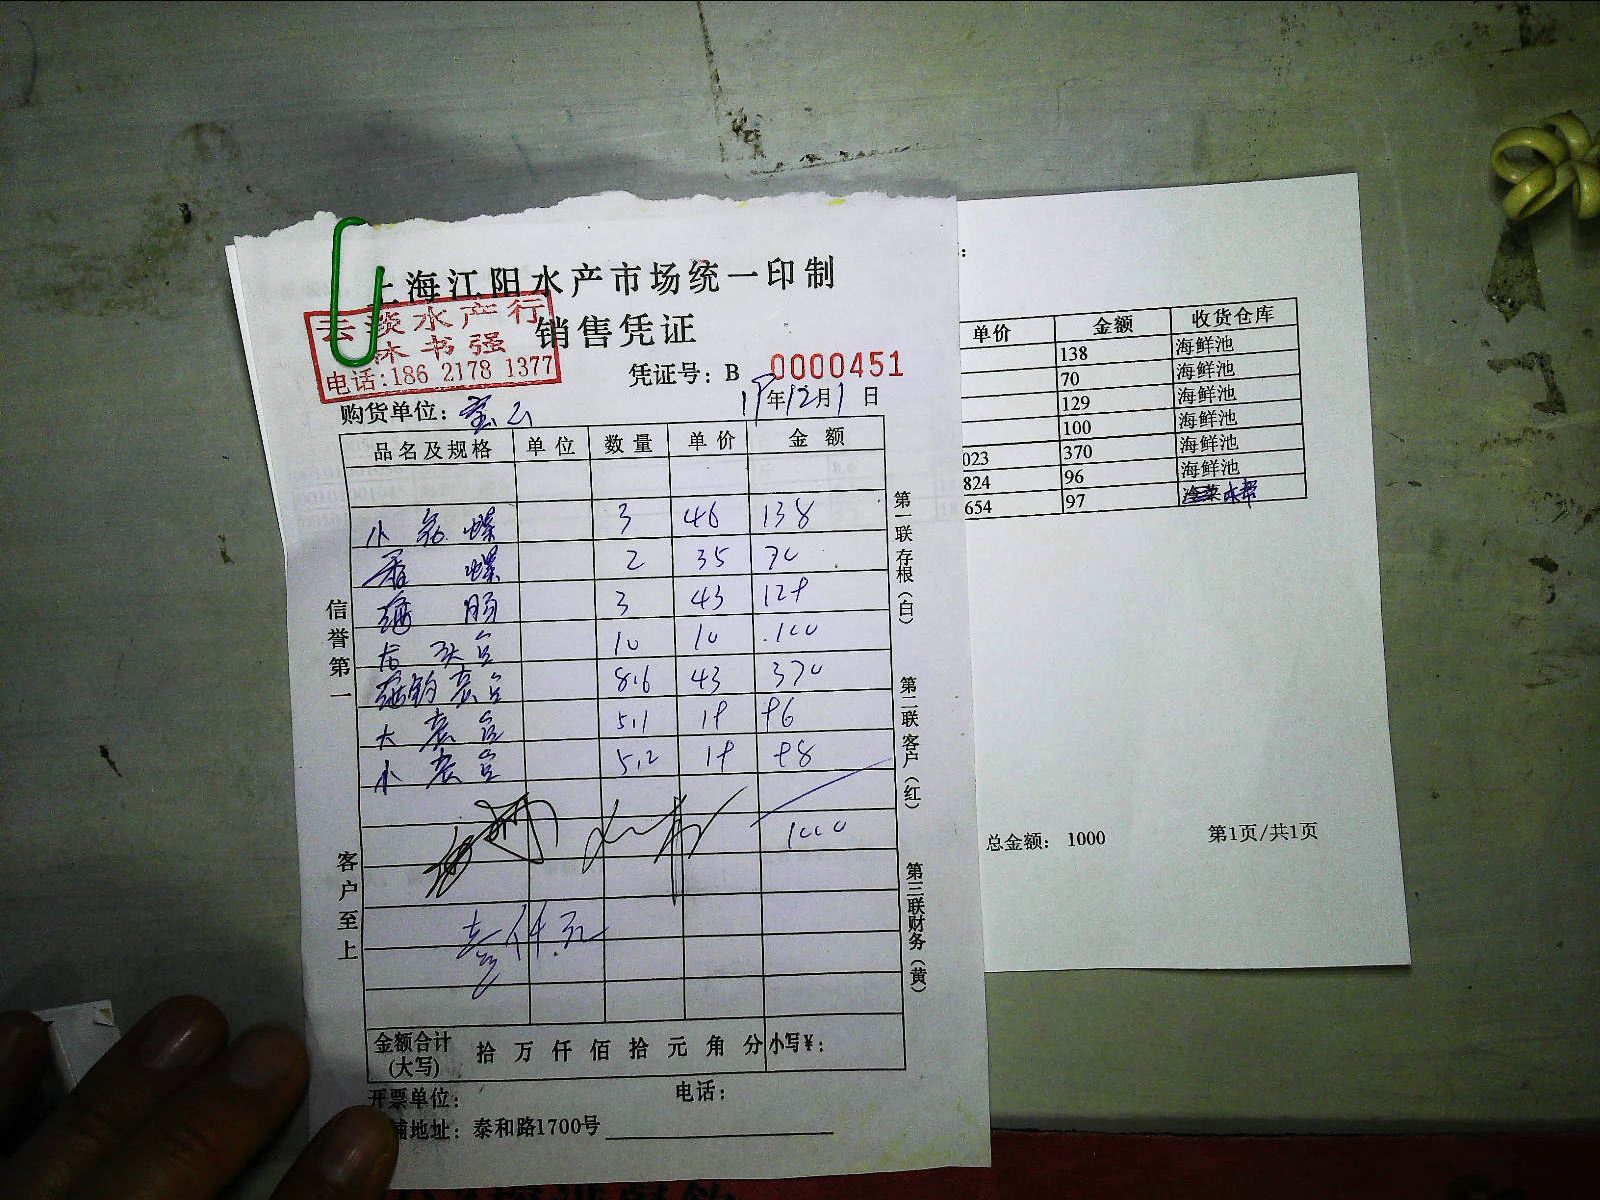 上海江阳水产市场统一印制
销售凭证
云淡水产行
林书强
电话:186 2178 1377
凭证号: B 0000451
购货单位: 宝山
19年12月1日
品名及规格 单位 数量 单价 金额
小 螺 3 46 138
香 螺 2 35 70
海 肠 3 43 129
龙 头 10 10 100
8.6 43 370
大 5.1 19 96
小 5.2 19 98
1000
壹仟元
金额合计(大写) 拾 万 仟 佰 拾 元 角 分 小写¥:
开票单位: 电话:
铺地址: 泰和路1700号
信誉第一
客户至上
第一联存根(白)
第二联客户(红)
第三联财务(黄)
单价 金额 收货仓库
138 海鲜池
70 海鲜池
129 海鲜池
100 海鲜池
023 370 海鲜池
824 96 海鲜池
654 97
总金额: 1000 第1页/共1页